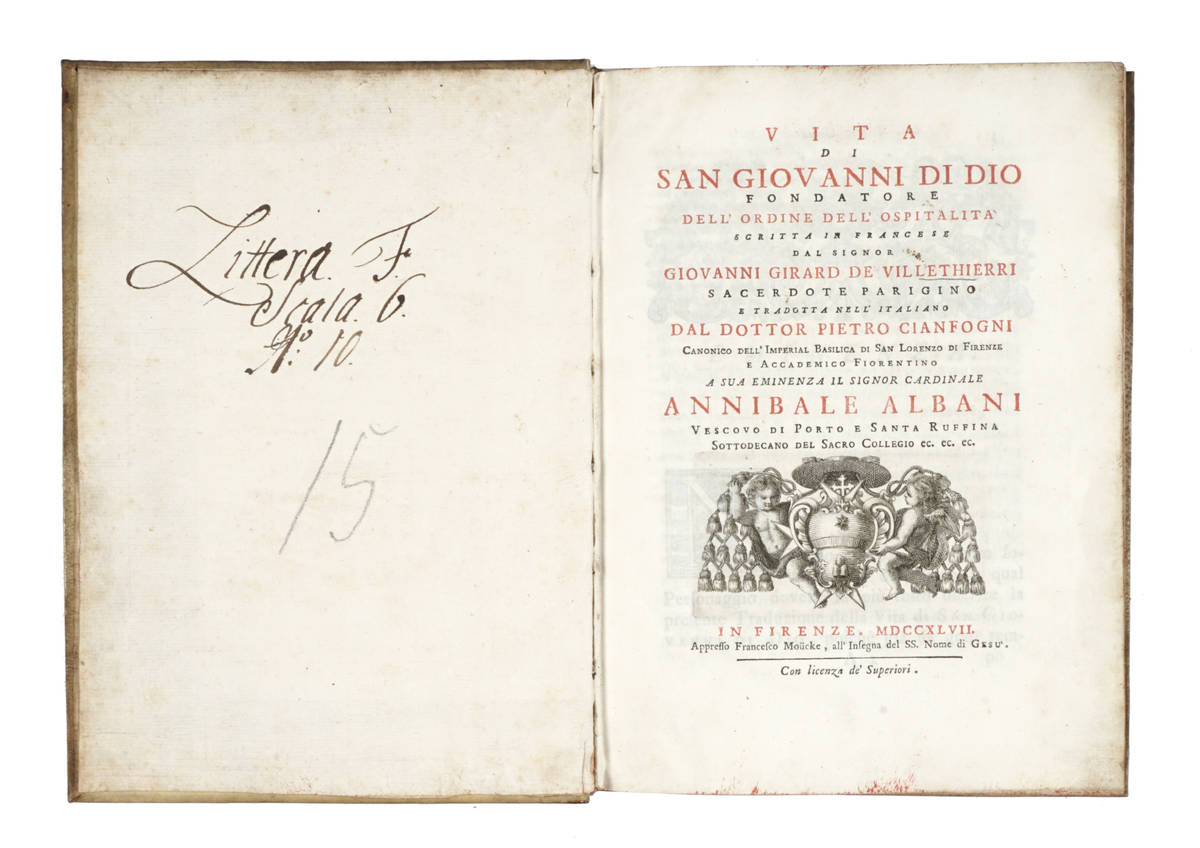 Littera. F.
Scala. 6.
No: 10.
15
VITA
DI
SAN GIOVANNI DI DIO
FONDATORE
DELL' ORDINE DELL' OSPITALITA'
SCRITTA IN FRANCESE
DAL SIGNOR
GIOVANNI GIRARD DE VILLETHIERRI
SACERDOTE PARIGINO
E TRADOTTA NELL' ITALIANO
DAL DOTTOR PIETRO CIANFOGNI
CANONICO DELL' IMPERIAL BASILICA DI SAN LORENZO DI FIRENZE
E ACCADEMICO FIORENTINO
A SUA EMINENZA IL SIGNOR CARDINALE
ANNIBALE ALBANI
VESCOVO DI PORTO E SANTA RUFFINA
SOTTODECANO DEL SACRO COLLEGIO EC. EC. EC.
IN FIRENZE. MDCCXLVII.
Appresso Francesco Moücke, all' Insegna del SS. Nome di GESU'.
Con licenza de' Superiori.